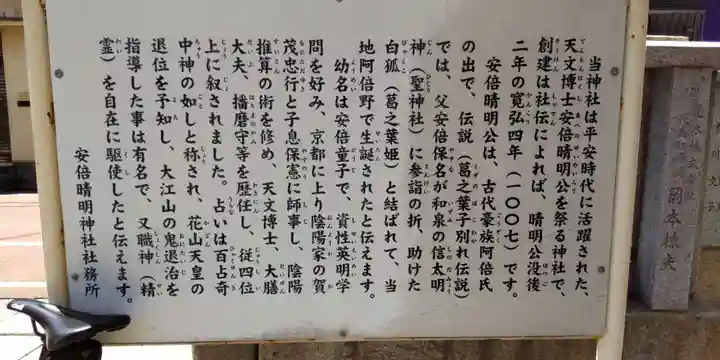 当神社は平安時代に活躍された、
天文博士安倍晴明公を祭る神社で、
創建は社伝によれば、晴明公没後
二年の寛弘四年（一〇〇七）です。
安倍晴明公は、古代豪族阿倍氏
の出で、伝説（葛之葉子別れ伝説）
では、父安倍保名が和泉の信太明
神（聖神社）に参詣の折、助けた
白狐（葛之葉姫）と結ばれて、当
地阿倍野で生誕されたと伝えます。
幼名は安倍童子で、資性英明学
問を好み、京都に上り陰陽家の賀
茂忠行と子息保憲に師事し、陰陽
推算の術を修め、天文博士、大膳
大夫、播磨守等を歴任し、従四位
上に叙されました。占いは百占奇
中神の如しと称され、花山天皇の
退位を予知し、大江山の鬼退治を
指導した事は有名で、又職神（精
霊）を自在に駆使したと伝えます。
安倍晴明神社社務所
岡本